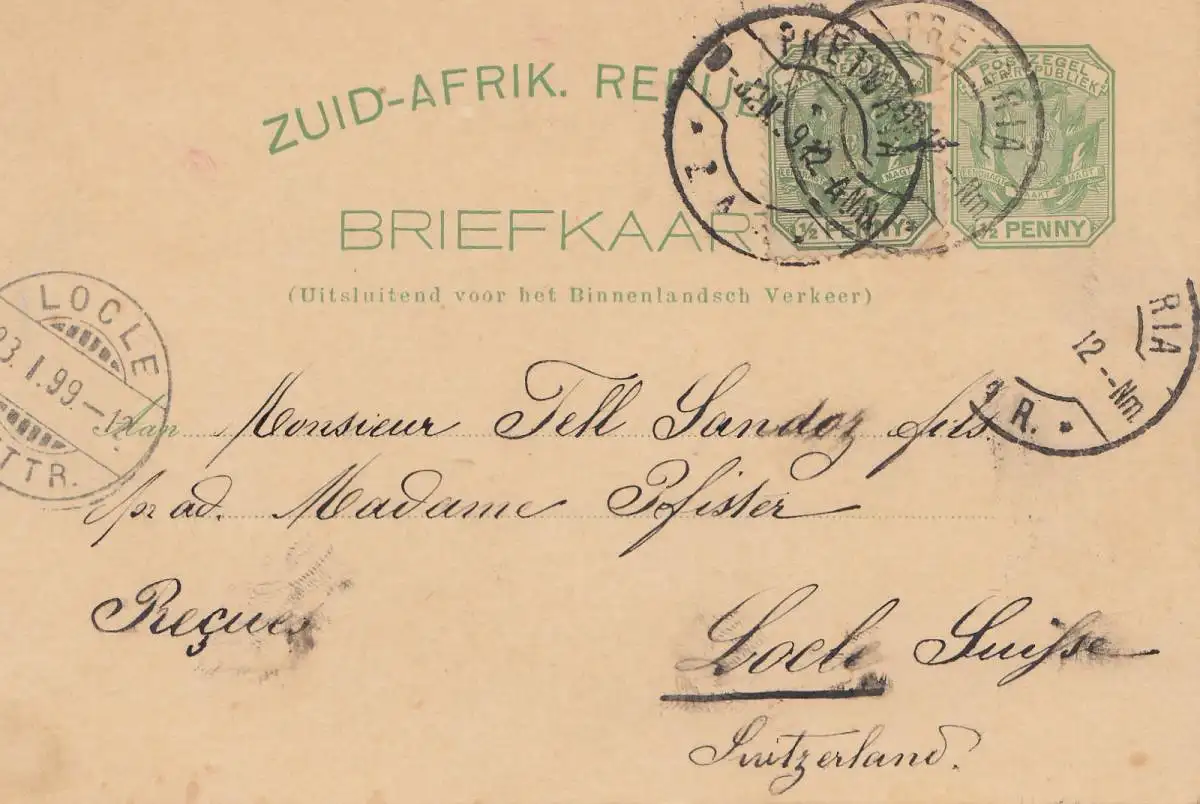 ZUID-AFRIK. REPUB
POSTZEGEL
AFR. REPUBLIEK
EENDRAGT MAAKT MAGT
½ PENNY
½ PENNY
PRETORIA
PRETORIA
BRIEFKAAR
(Uitsluitend voor het Binnenlandsch Verkeer)
LOCLE
23.I.99.-12
LETTR.
RIA
12--Nm
R.
Aan Monsieur Tell Sandoz fils
pr ad. Madame Pfister
Reçues
Locle Suisse
Switzerland.